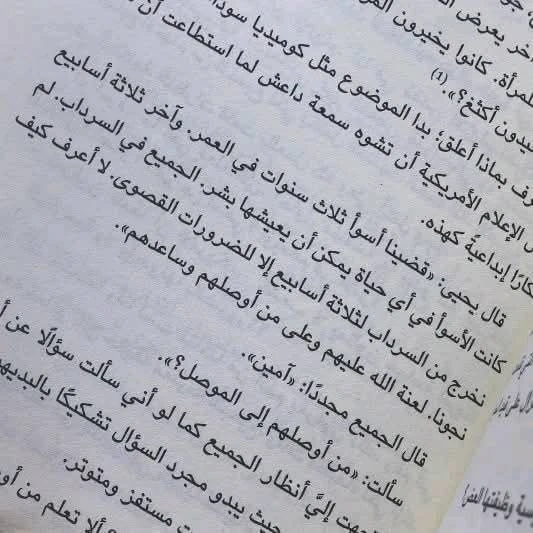 آخر يعرض
للمرأة. كانوا يخيرون
أكثغ؟».(1)
بماذا أعلق؛ بدا الموضوع مثل كوميديا
الإعلام الأمريكية أن تشوه سمعة داعش لما استطاعت أن
إبداعية كهذه.
قال يحيى: «قضينا أسوأ ثلاث سنوات في العمر. وآخر ثلاثة أسابيع
كانت الأسوأ في أي حياة يمكن أن يعيشها بشر. الجميع في السرداب. لم
نخرج من السرداب لثلاثة أسابيع إلا للضرورات القصوى. لا أعرف كيف
نجونا. لعنة الله عليهم وعلى من أوصلهم وساعدهم».
قال الجميع مجددًا: «آمين».
سألت: «من أوصلهم إلى الموصل؟».
إليَّ أنظار الجميع كما لو أني سألت سؤالًا عن
حيث يبدو مجرد السؤال تشكيكًا
مستفز ومتوتر.
ألا تعلم من